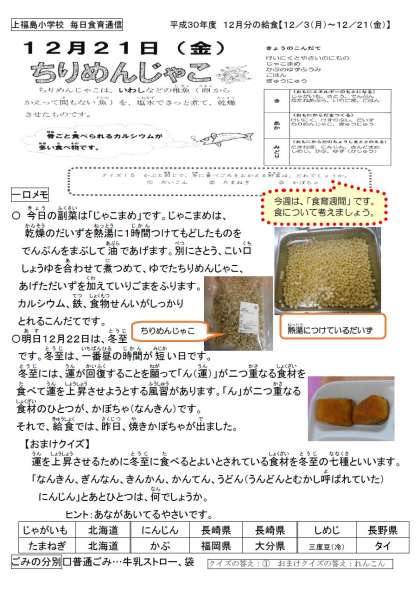 上福島小学校　毎日食育通信
平成30年度　12月分の給食【12／3（月）～12／21（金）】
12月21日（金）
きょうのこんだて
ちりめんじゃこ
じゃこまめ
ごはん
ぎゅうにゅう
ちりめんじゃこは、いわしなどの稚魚（卵から
かえって間もない魚）を、塩水でさっと煮て、乾燥
させたものです。
き
あか
みどり
骨ごと食べられるカルシウムが
多い食べ物です。
一口メモ
今週は、「食育週間」です。
食について考えましょう。
○ 今日の副菜は「じゃこまめ」です。じゃこまめは、
乾燥のだいずを熱湯に1時間つけてもどしたものを
でんぷんをまぶして油であげます。別にさとう、こい口
しょうゆを合わせて煮つめて、ゆでたちりめんじゃこ、
あげただいずを加えていりごまをふります。
カルシウム、鉄、食物せんいがしっかり
とれるこんだてです。
ちりめんじゃこ
熱湯につけているだいず
○明日12月22日は、冬至
です。冬至は、一番昼の時間が短い日です。
冬至には、運が回復することを願って「ん（運）」が二つ重なる食材を
食べて運を上昇させようとする風習があります。「ん」が二つ重なる
食材のひとつが、かぼちゃ（なんきん）です。
それで、給食では、昨日、焼きかぼちゃが出ました。
【おまけクイズ】
運を上昇させるために冬至に食べるとよいとされている食材を冬至の七種といいます。
「なんきん、ぎんなん、きんかん、かんてん、うどん（うんどんとむかし呼ばれていた）
にんじん」とあとひとつは、何でしょうか。
ヒント：あながあいてるやさいです。
じゃがいも　北海道　にんじん　長崎県　長崎県　しめじ　長野県
たまねぎ　北海道　かぶ　福岡県　大分県　三度豆（冷）　タイ
ごみの分別　□普通ごみ…牛乳ストロー、袋
クイズの答え：①　おまけクイズの答え：れんこん